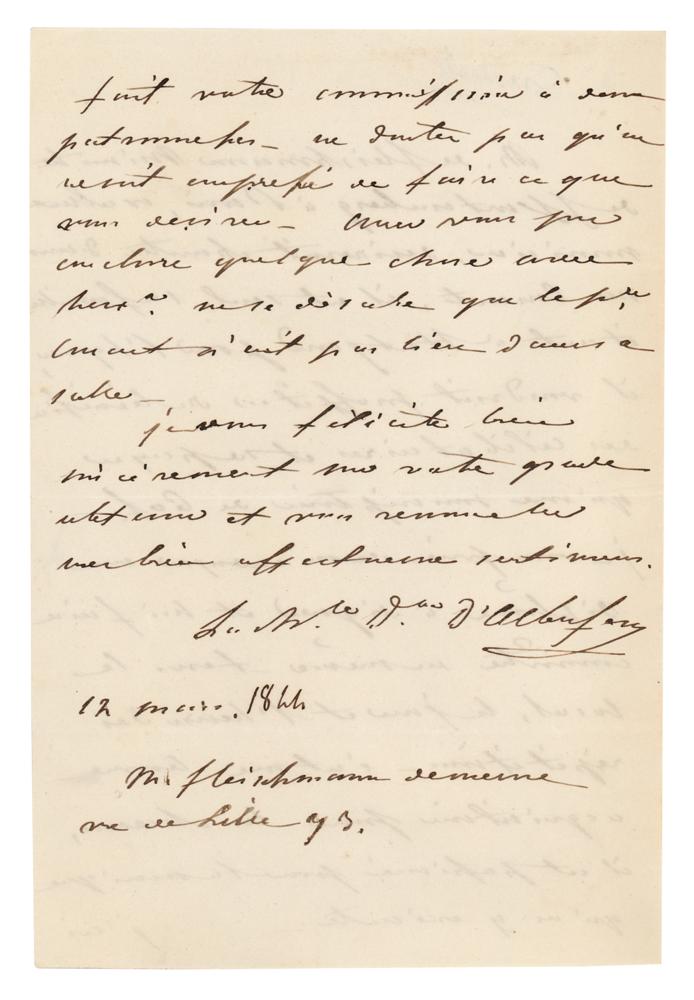 fait votre commission à deux
patronnesses_ ne doutez pas qu'on
ne soit empressé de faire ce que
vous desirez_ avez vous pu
conclure quelque chose avec
herz? ne se désole que le pr
Concert n'ait pas lieu dans sa
salle_
je vous félicite bien
sincèrement sur votre grade
obtenu et vous renouvelle
mes bien affectueux sentimens.
La M.le D.sse D'Albufera
12 mars. 1844
M. fleischmann demeure
rue de Lille 93.